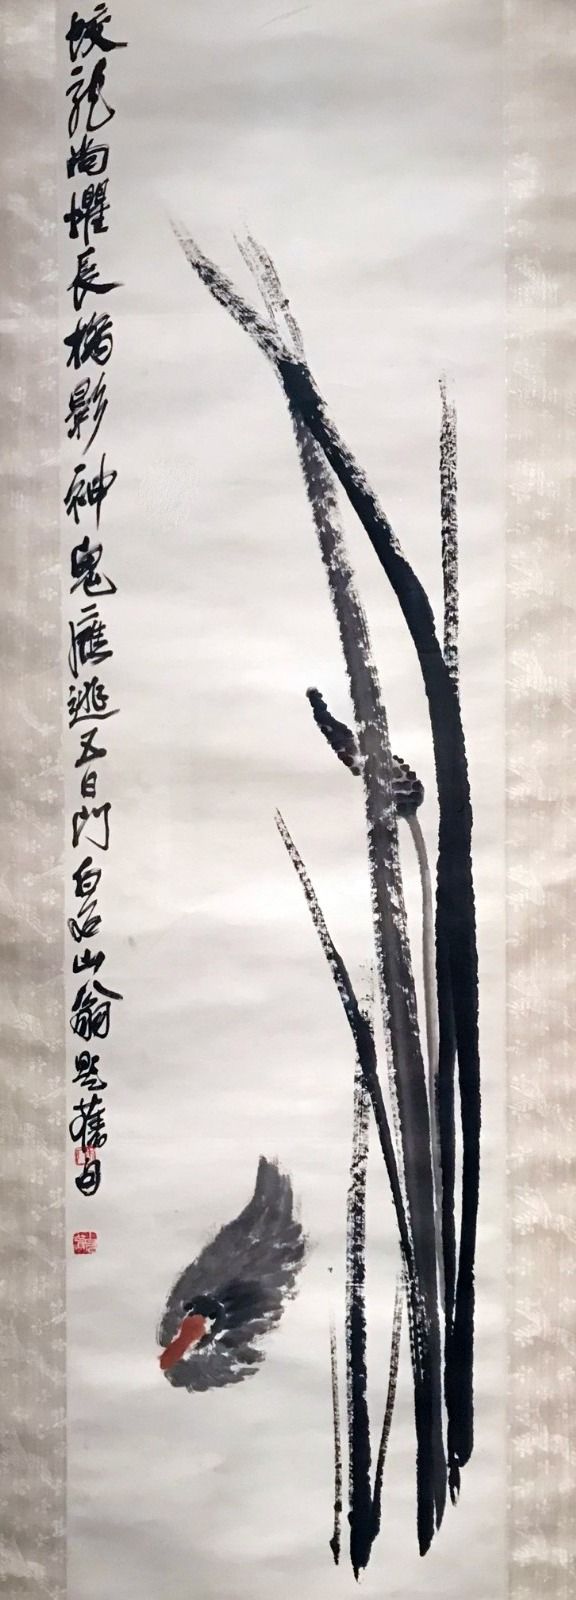 蛟龍尚懼長橋影神鬼應逃五日門白石山翁題舊句